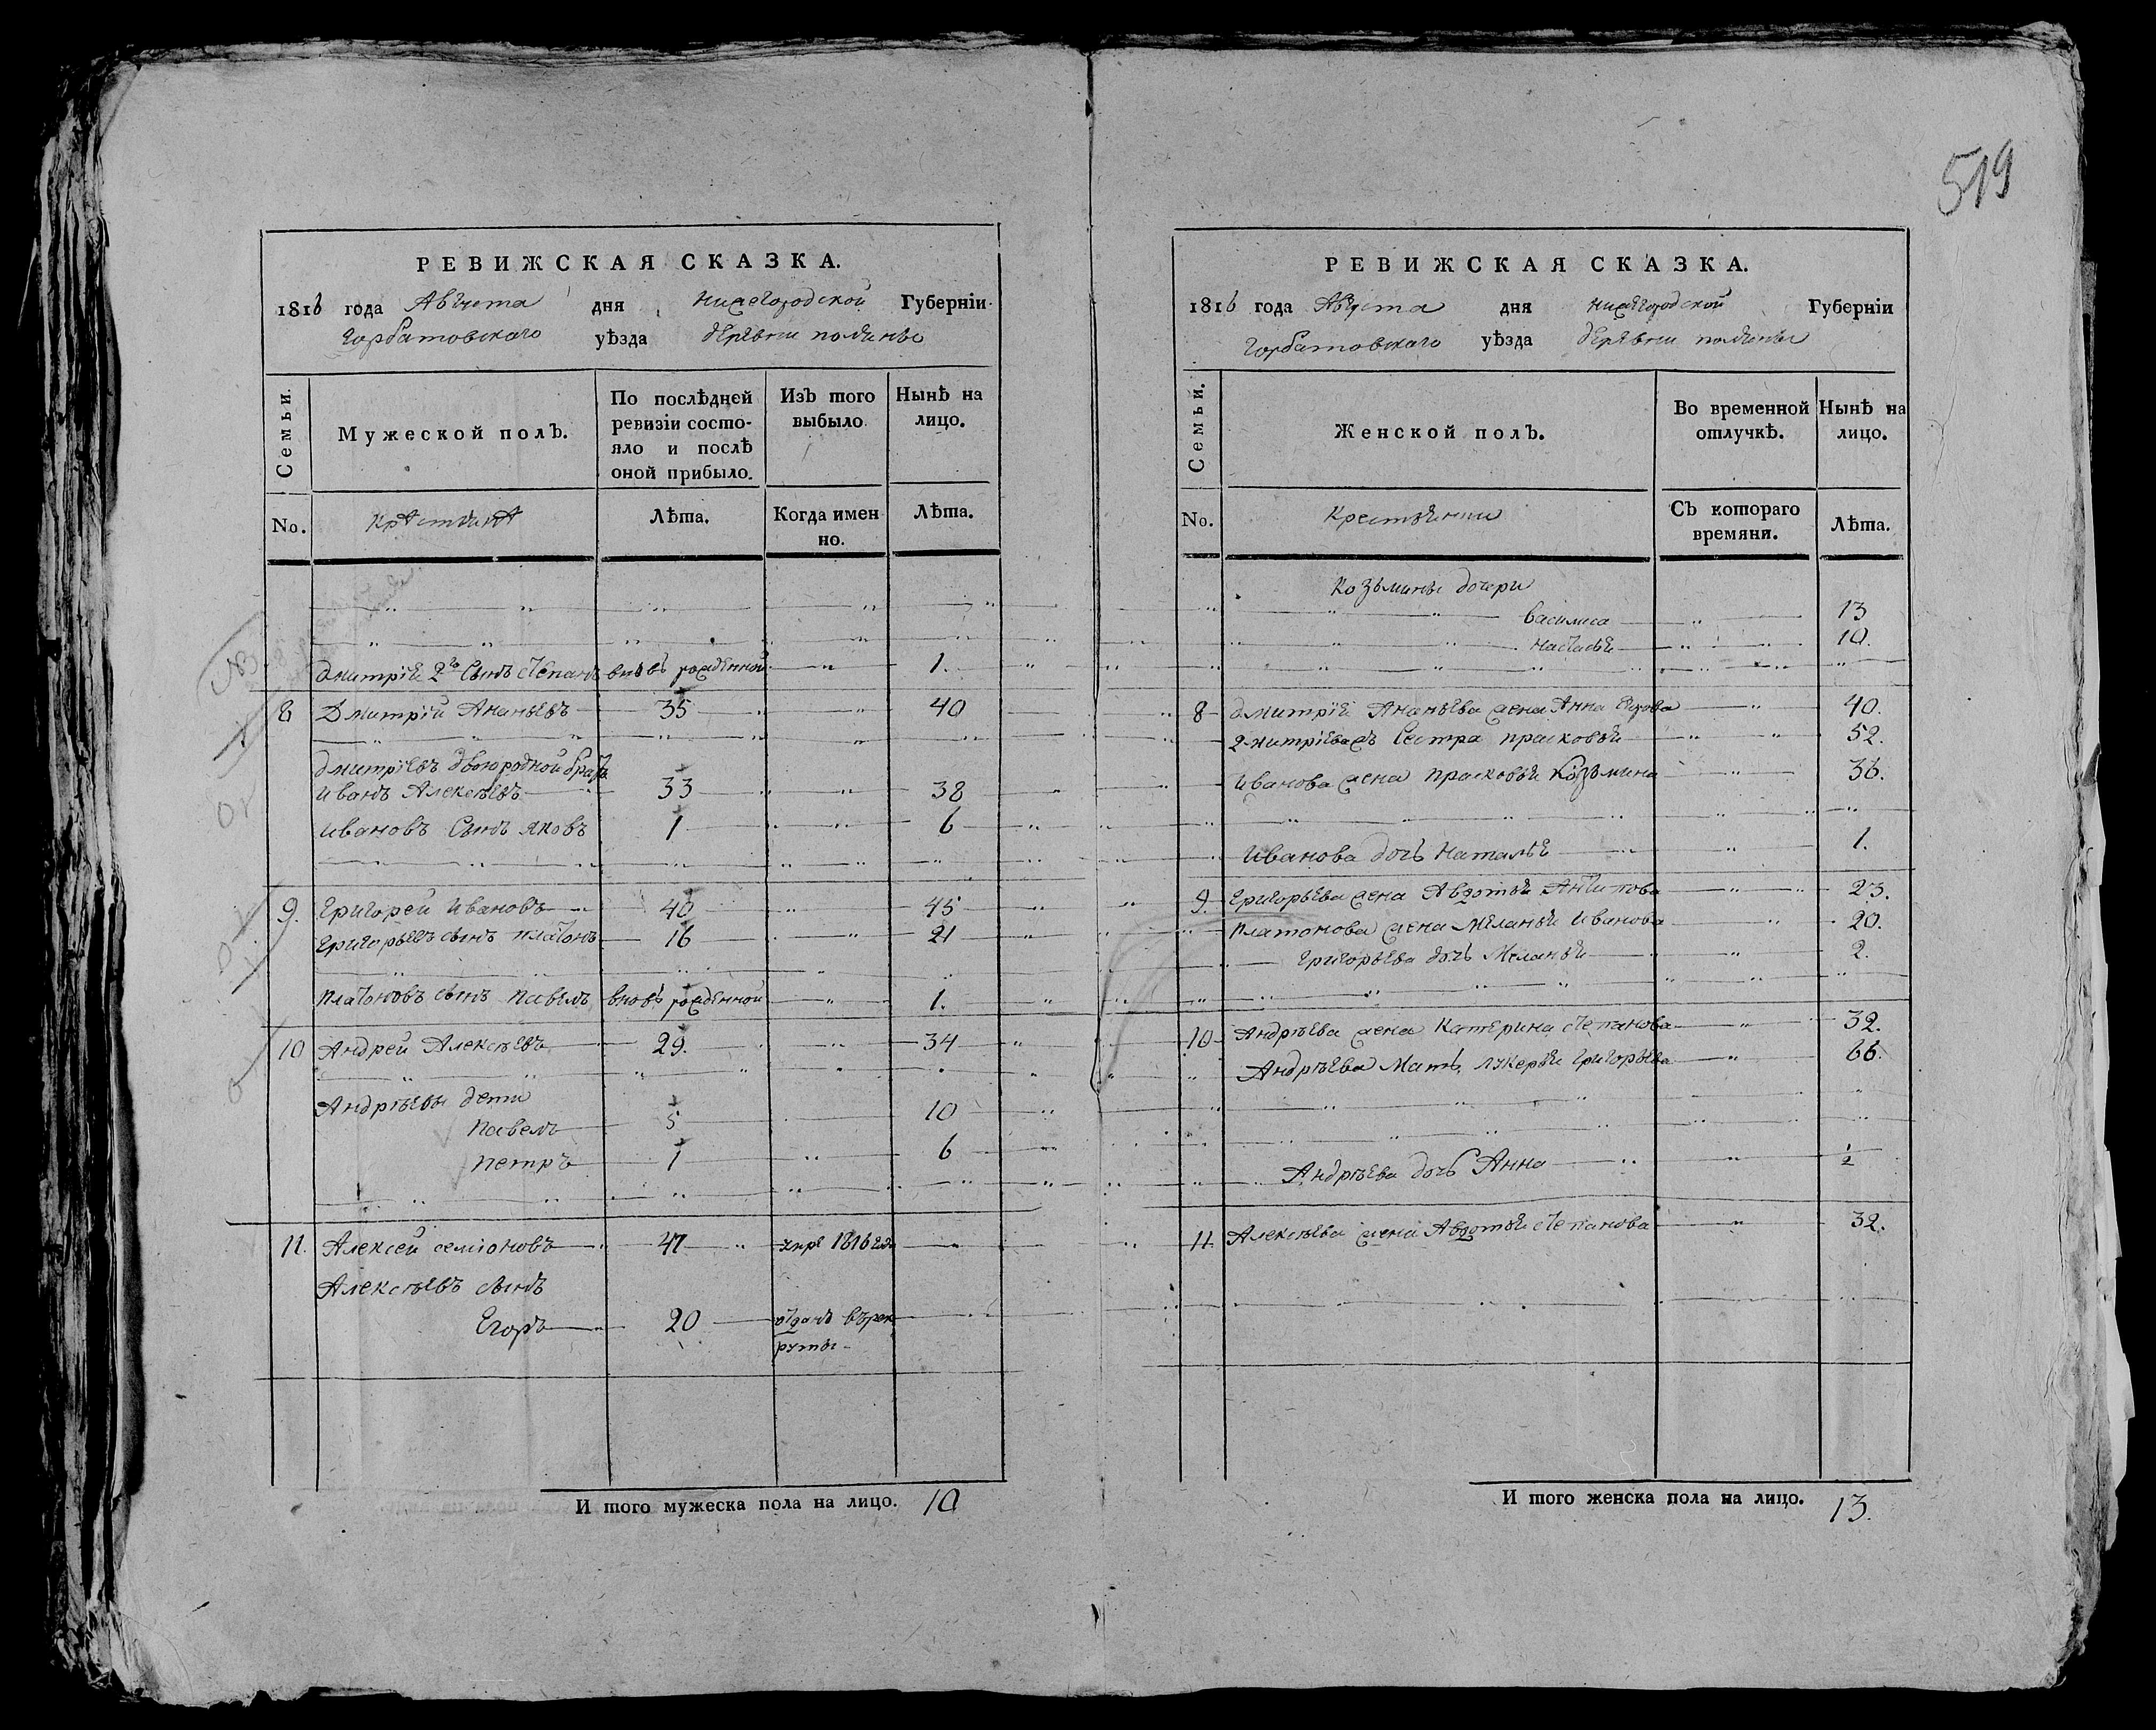 519
РЕВИЖСКАЯ СКАЗКА.
1816 года Августа дня Нижегородской Губерніи
Горбатовскаго уѣзда деревни
Семьи.
Мужеской полъ.
По послѣдней ревизіи состо-
яло и послѣ
оной прибыло.
Изъ того
выбыло
Нынѣ на
лицо.
No.
Лѣта.
Когда имен
но.
Лѣта.
Дмитрій 2й сынъ Степанъ вновь рожденной 1.
8 Дмитрій Ананьевъ 35 40
Дмитріевъ двоюродной братъ
Иванъ Алексѣевъ 33 38
Ивановъ сынъ Яковъ 1 6
9. Григорей Ивановъ 40 45
Григорьевъ сынъ Платонъ 16 21
Платоновъ сынъ Павелъ вновь рожденной 1.
10 Андрей Алексѣевъ 29. 34
Андрѣевы дети
Павелъ 5 10
Петръ 1 6
11. Алексей Семіоновъ 47 1816 году
Алексѣевъ сынъ
Егоръ 20 отданъ врек
руты
И того мужеска пола на лицо. 10
РЕВИЖСКАЯ СКАЗКА.
1816 года Августа дня Нижегородской Губерніи
Горбатовскаго уѣзда деревни
Семьи.
Женской полъ.
Во временной
отлучкѣ.
Нынѣ на
лицо.
No.
Съ котораго
времяни.
Лѣта.
Козьмины дочери
Василиса 13
Настасья 10.
8 Дмитрія Ананьева жена Анна 40.
Сестра Прасковья 52.
Иванова жена Прасковья Козьмина 36.
Иванова дочь Наталья 1.
9. Григорьева жена Авдотья Антипова 23.
Платонова жена Меланья Иванова 20.
Григорьева дочь Меланья 2.
10 Андрѣева жена Катерина Степанова 32.
Андрѣева Мать Лукерья Григорьева 66.
Андрѣева дочь Анна 1/2
11. Алексѣева жена Авдотья Степанова 32.
И того женска пола на лицо. 13.